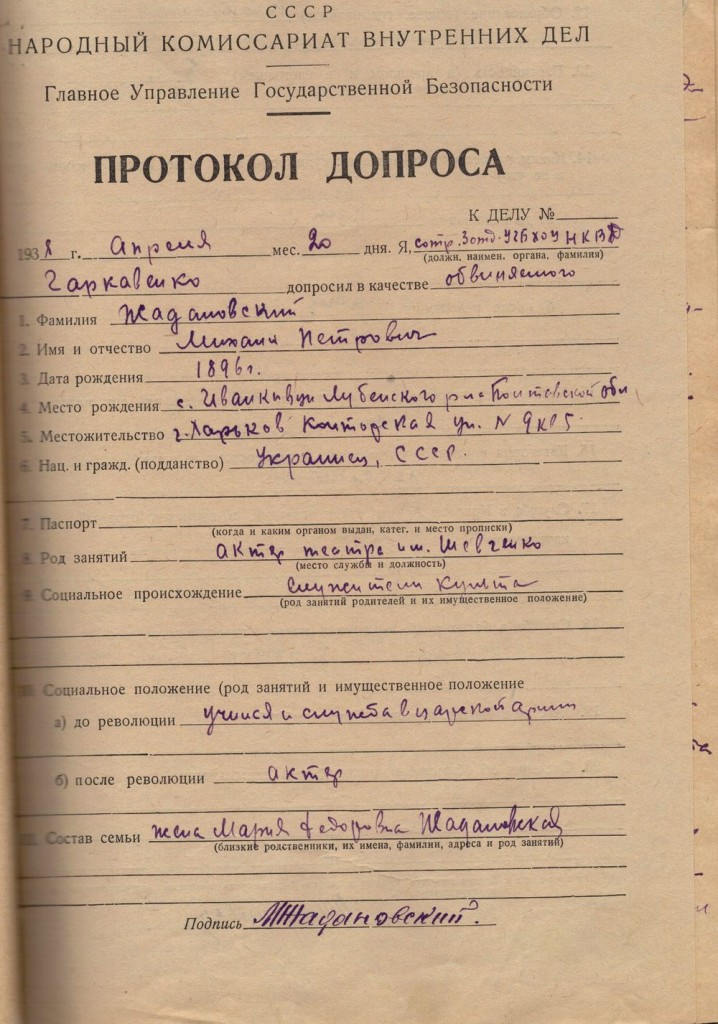 СССР
НАРОДНЫЙ КОМИССАРИАТ ВНУТРЕННИХ ДЕЛ
Главное Управление Государственной Безопасности
ПРОТОКОЛ ДОПРОСА
К ДЕЛУ №
1938 г. Апреля мес. 20 дня. Я, сотр. 3 отд. УГБ ХОУ НКВД
(должн. наимен. органа, фамилия)
Гаркавенко допросил в качестве обвиняемого
1. Фамилия Жадановский
2. Имя и отчество Михаил Петрович
3. Дата рождения 1896 г.
4. Место рождения с. Иванкивци Лубенского р-на Полтавской обл
5. Местожительство г. Харьков Конторская ул. N 9 кв 5.
6. Нац. и гражд. (подданство) Украинец, СССР.
7. Паспорт
(когда и каким органом выдан, катег. и место прописки)
8. Род занятий актер театра им. Шевченко
(место службы и должность)
9. Социальное происхождение Служители культа
(род занятий родителей и их имущественное положение)
Социальное положение (род занятий и имущественное положение
а) до революции учился и служба в царской армии
б) после революции актер
Состав семьи жена Мария Федоровна Жадановская
(близкие родственники, их имена, фамилии, адреса и род занятий)
Подпись МЖадановский